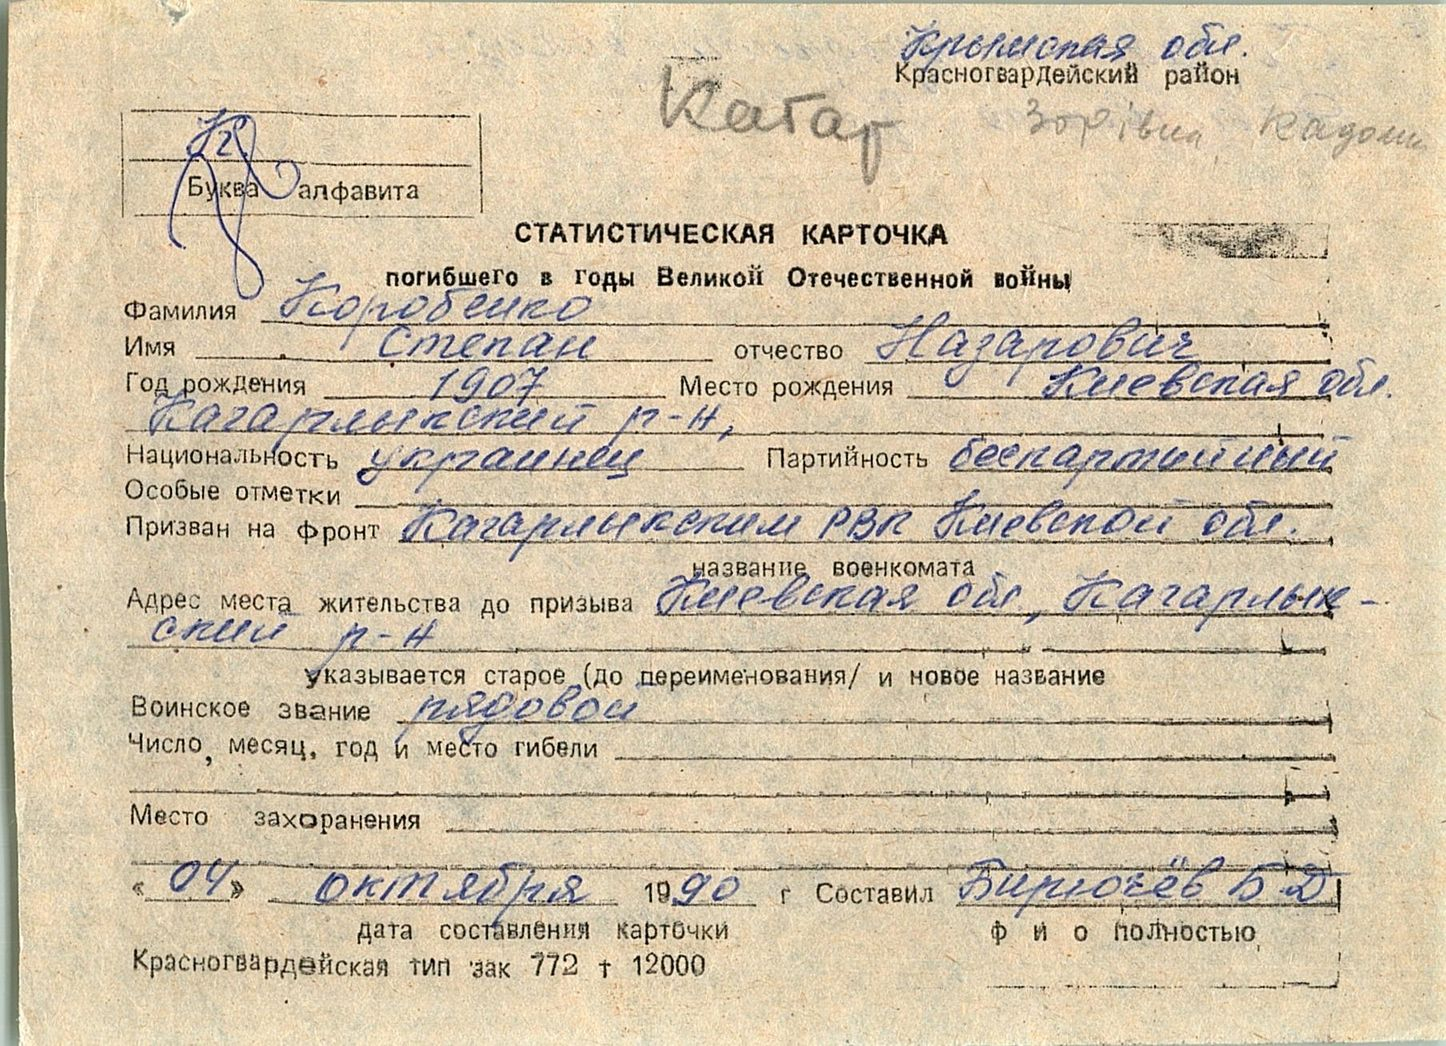 Крымская обл.
Красногвардейский район
Кагар
Зорівка,
К
Буква алфавита
СТАТИСТИЧЕСКАЯ КАРТОЧКА
погибшего в годы Великой Отечественной войны
Фамилия Коробенко
Имя Степан отчество Назарович
Год рождения 1907 Место рождения Киевская обл.
Кагарлыкский р-н,
Национальность украинец Партийность беспартийный
Особые отметки
Призван на фронт Кагарлыкским РВК Киевской обл.
название военкомата
Адрес места жительства до призыва Киевская обл, Кагарлык-
ский р-н
указывается старое (до переименования/ и новое название
Воинское звание рядовой
Число, месяц, год и место гибели
Место захоронения
«04» октября 1990 г Составил Бирючёв Б Д
дата составления карточки ф и о полностью
Красногвардейская тип зак 772 т 12000